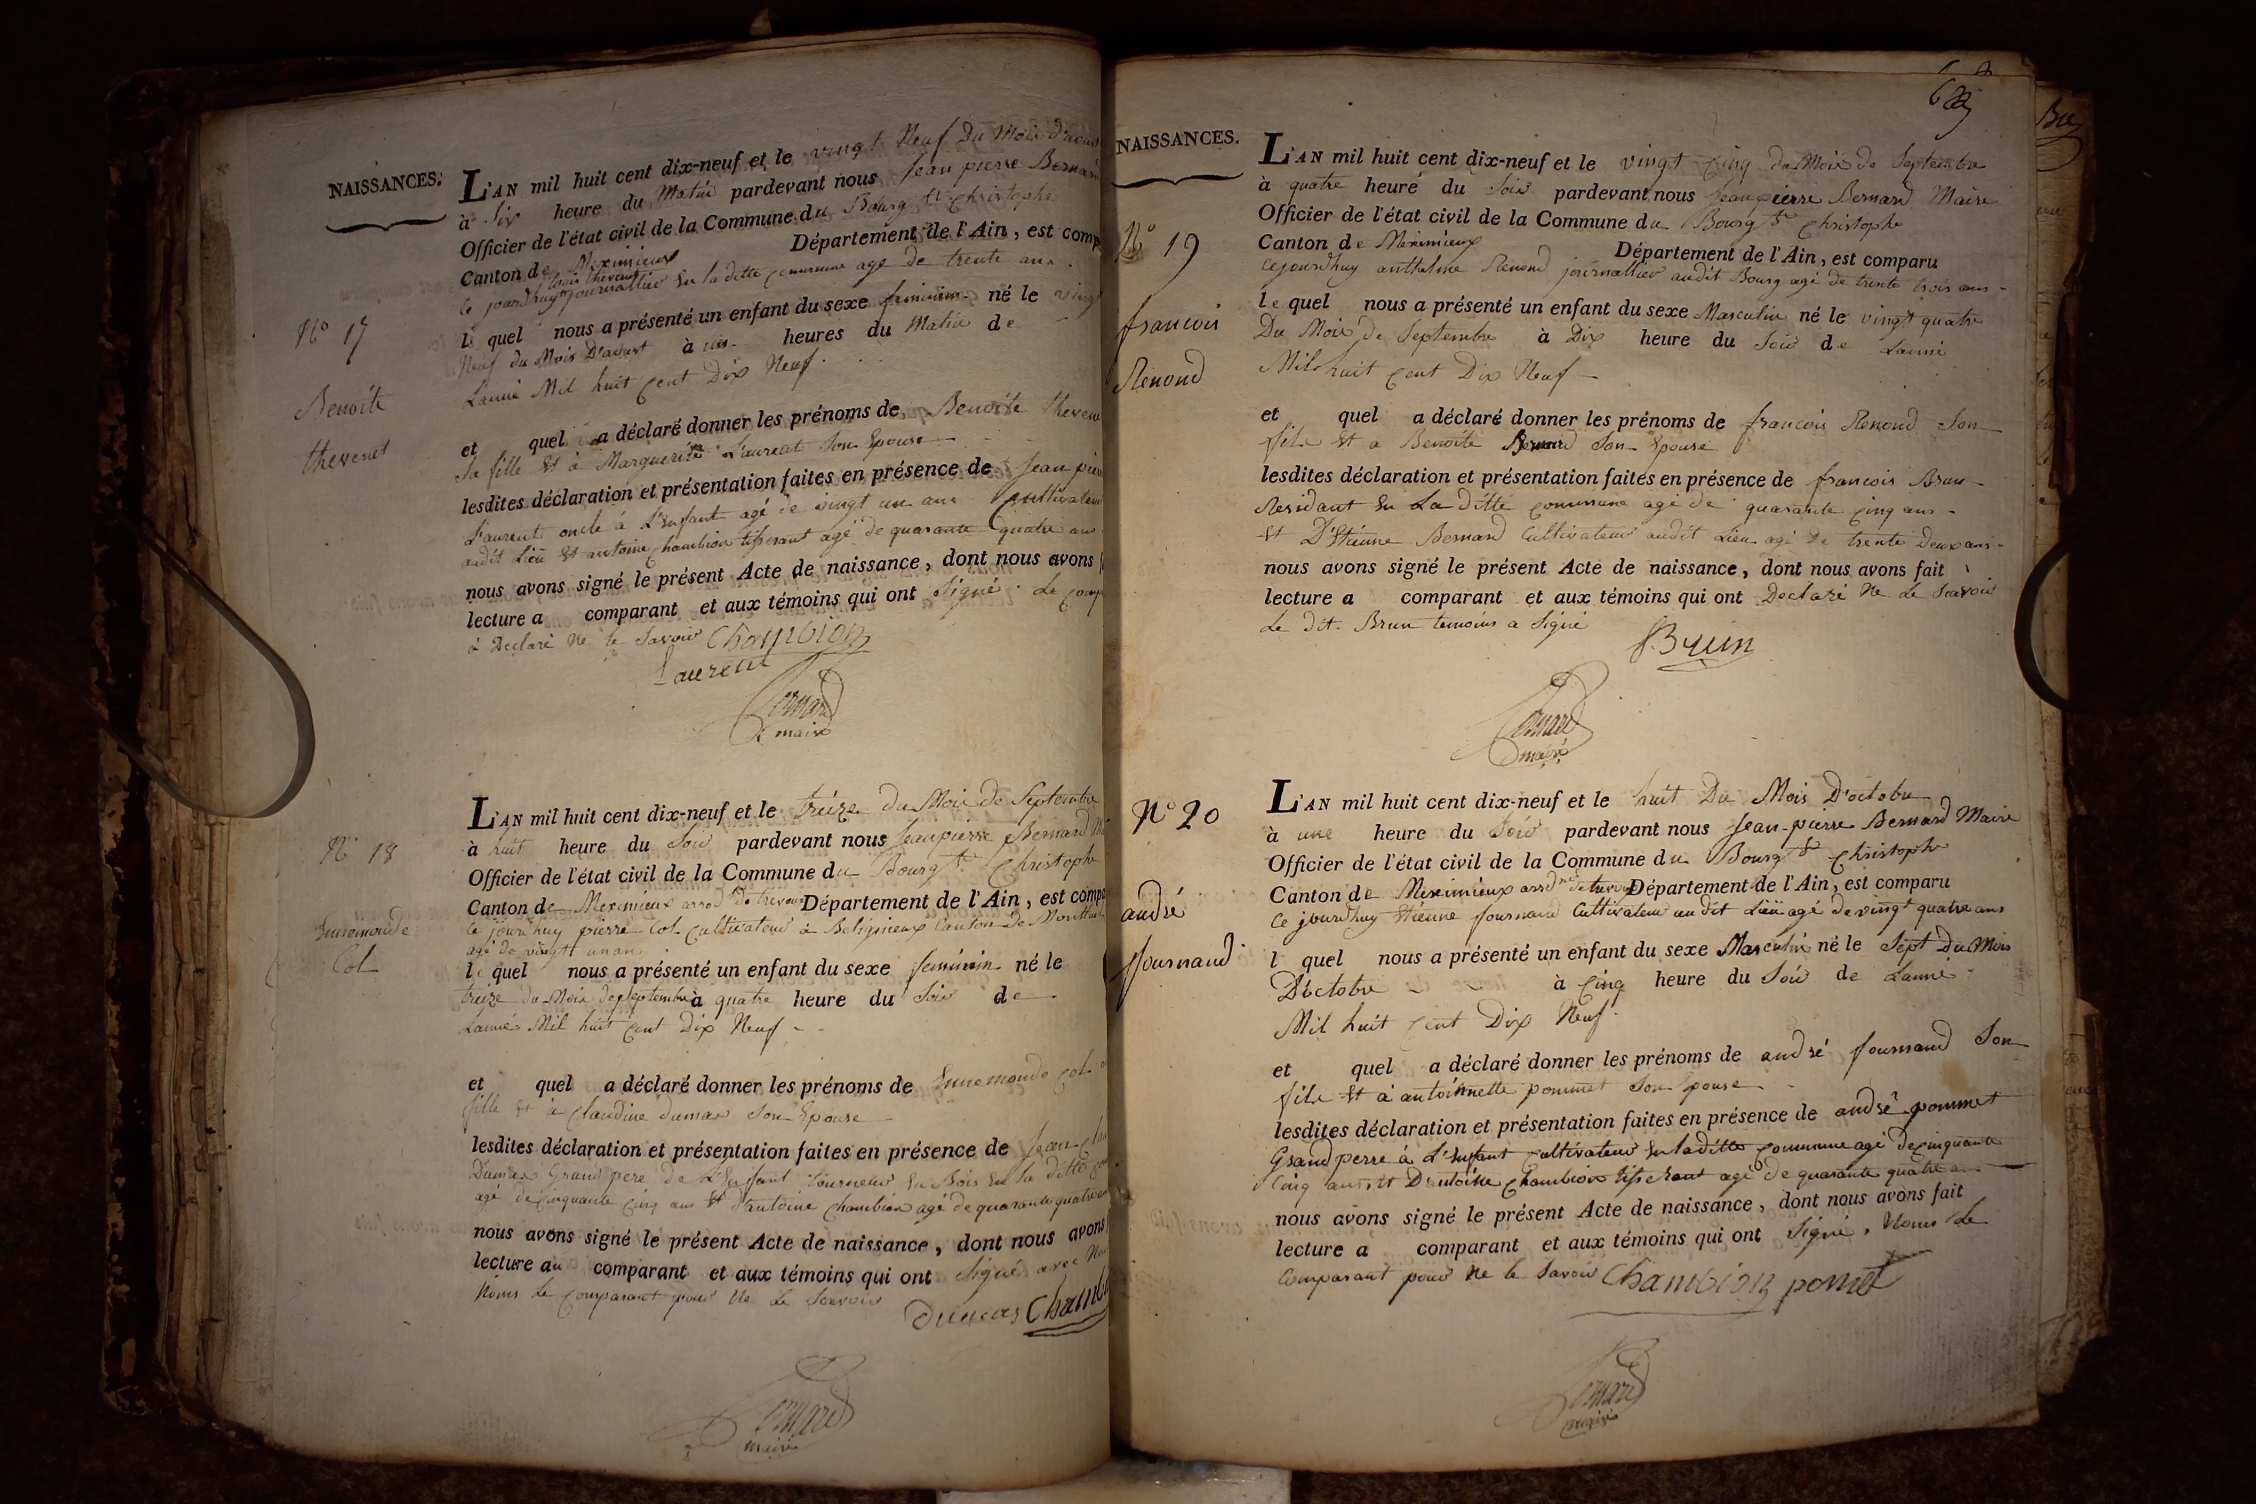 NAISSANCES.
L'AN mil huit cent dix-neuf et le vingt Neuf Du Mois D'aout
à Six heure du Matin pardevant nous Jean pierre Bernard
Officier de l'état civil de la Commune du Bourg St Christophe
Canton de Meximieux Département de l'Ain, est comp
ce jourdhuy thevenet journallier En la ditte commune agé de trente ans
le quel nous a présenté un enfant du sexe feminin né le vingt
Neuf du Mois D'aoust à heures du Matin de
L'année Mil huit Cent Dix Neuf.
et quel a déclaré donner les prénoms de Benoite theven
Sa fille Et à Marguerite Laurent Son Epouse
lesdites déclaration et présentation faites en présence de Jean pier
Laurent oncle à L'Enfant agé de vingt un ans Cultivateur
audit Lieu Et antoine Chambion tisserant agé de quarante quatre ans
nous avons signé le présent Acte de naissance, dont nous avons
lecture a comparant et aux témoins qui ont Signé. Le comp
à Déclaré Ne le Savoir Chambion
Laurent
Bernard
maire
N° 17
Benoite
thevenet
L'AN mil huit cent dix-neuf et le treize du Mois de Septembre
à huit heure du Soir pardevant nous Jean pierre Bernard
Officier de l'état civil de la Commune du Bourg St Christophe
Canton de Meximieux arrod de trevoux Département de l'Ain, est comp
Ce jourdhuy pierre Col Cultivateur à Beligneux Canton De Montluel
agé de vingt un an
le quel nous a présenté un enfant du sexe feminin né le
treize du Mois de Septembre à quatre heure du Soir de
L'année Mil huit Cent Dix Neuf
et quel a déclaré donner les prénoms de Ennemonde Col
fille Et à Claudine dumas Son Epouse
lesdites déclaration et présentation faites en présence de Jean
Dumas Grand pere de L'Enfant tourneur En Bois En la ditte
agé de Cinquante Cinq ans Et d'antoine Chambion agé de quarante quatre
nous avons signé le présent Acte de naissance, dont nous avons
lecture au comparant et aux témoins qui ont Signé avec
Noms Le Comparant pour Ne Le Savoir
Dumas Chambi
Bernard
maire
N° 18
Ennemonde
Col
NAISSANCES.
L'AN mil huit cent dix-neuf et le vingt Cinq du Mois de Septembre
à quatre heure du Soir pardevant nous Jean pierre Bernard Maire
Officier de l'état civil de la Commune du Bourg St Christophe
Canton de Meximieux Département de l'Ain, est comparu
Cejourdhuy anthelme Renond journallier audit Bourg agé de trente trois ans
le quel nous a présenté un enfant du sexe Masculin né le vingt quatre
Du Mois de Septembre à Dix heure du Soir de L'année
Mil huit Cent Dix Neuf
et quel a déclaré donner les prénoms de francois Renond Son
fils Et a Benoite Bernard Son Epouse
lesdites déclaration et présentation faites en présence de francois Brun
Residant En La ditte commune agé de quarante Cinq ans
Et D'Etienne Bernard Cultivateur audit Lieu agé de trente Deux ans
nous avons signé le présent Acte de naissance, dont nous avons fait
lecture a comparant et aux témoins qui ont Déclaré Ne Le Savoir
Le dit. Brun temoins a Signé
Brun
Bernard
maire
N° 19
francois
Renond
L'AN mil huit cent dix-neuf et le huit Du Mois D'octobre
à une heure du Soir pardevant nous Jean-pierre Bernard Maire
Officier de l'état civil de la Commune du Bourg St Christophe
Canton de Meximieux arrd de trevoux Département de l'Ain, est comparu
Ce jourdhuy Etienne fournand Cultivateur audit Lieu agé de vingt quatre ans
l quel nous a présenté un enfant du sexe Masculin né le Sept Du Mois
D'octobre à Cinq heure du Soir de L'année
Mil huit Cent Dix Neuf.
et quel a déclaré donner les prénoms de andré fournand Son
fils Et à antoinette pommet Son Epouse
lesdites déclaration et présentation faites en présence de andré pommet
Grand perre à L'Enfant Cultivateur En la ditte commune agé de cinquante
Cinq ans Et D'antoine Chambion tisserant agé de quarante quatre ans
nous avons signé le présent Acte de naissance, dont nous avons fait
lecture a comparant et aux témoins qui ont Signé, Noms Le
Comparant pour Ne le Savoir Chambion pomet
Bernard
maire
N° 20
andré
fournand